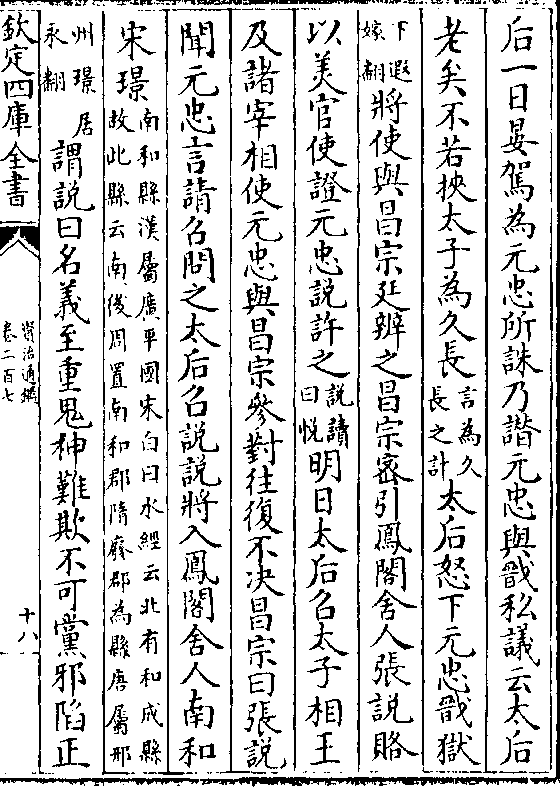 后一日晏駕為元忠所誅乃譖元忠與戩私議云太后
老矣不若挾太子為久長言為久長之計太后怒下元忠戩獄
下遐嫁翻將使與昌宗廷辨之昌宗密引鳳閣舍人張説賂
以美官使證元忠説許之説讀曰悦明日太后召太子相王
及諸宰相使元忠與昌宗參對往復不决昌宗曰張説
聞元忠言請召問之太后召説説將入鳳閣舍人南和
宋璟南和縣漢屬廣平國宋白曰水經云北有和成縣故此縣云南後周置南和郡隋廢郡為縣唐屬邢
州璟居永翻謂説曰名義至重鬼神難欺不可黨邪陷正
欽定四庫全書
資治通鑑
卷二百七
十八